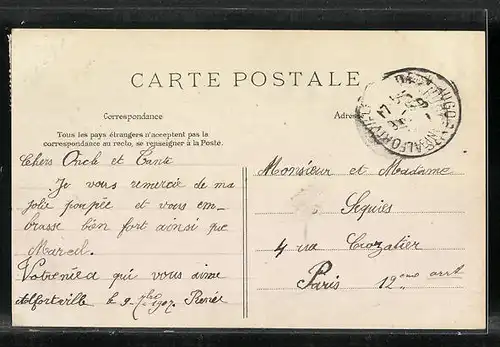 CARTE POSTALE
Correspondance
Tous les pays étrangers n'acceptent pas la
correspondance au recto, se renseigner à la Poste.
Chers Oncle et Tante
Je vous remercie de ma
jolie poupée et vous em-
brasse bien fort ainsi que
Marcel.
Votre nièce qui vous aime
Alfortville le 9-7bre-1907. Renée
Adresse
Monsieur et Madame
Séguiès
4 rue Crozatier
Paris 12eme arrt
ALFORTVILLE